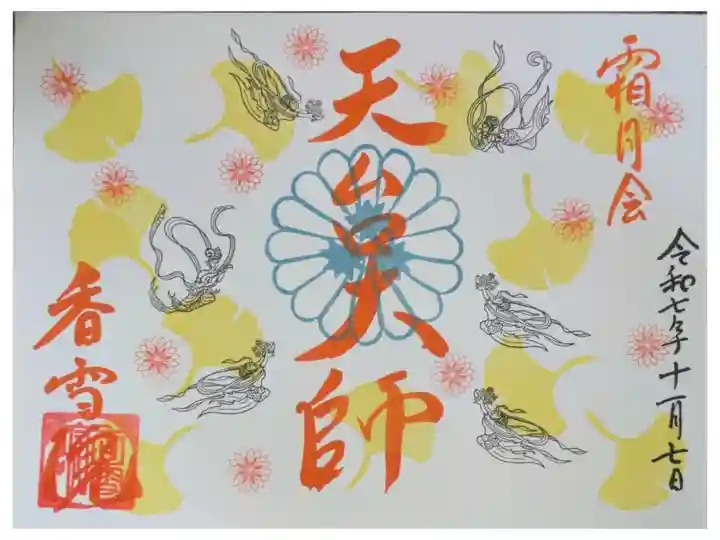 霜月会
令和七年十一月七日
天台大師
香雪